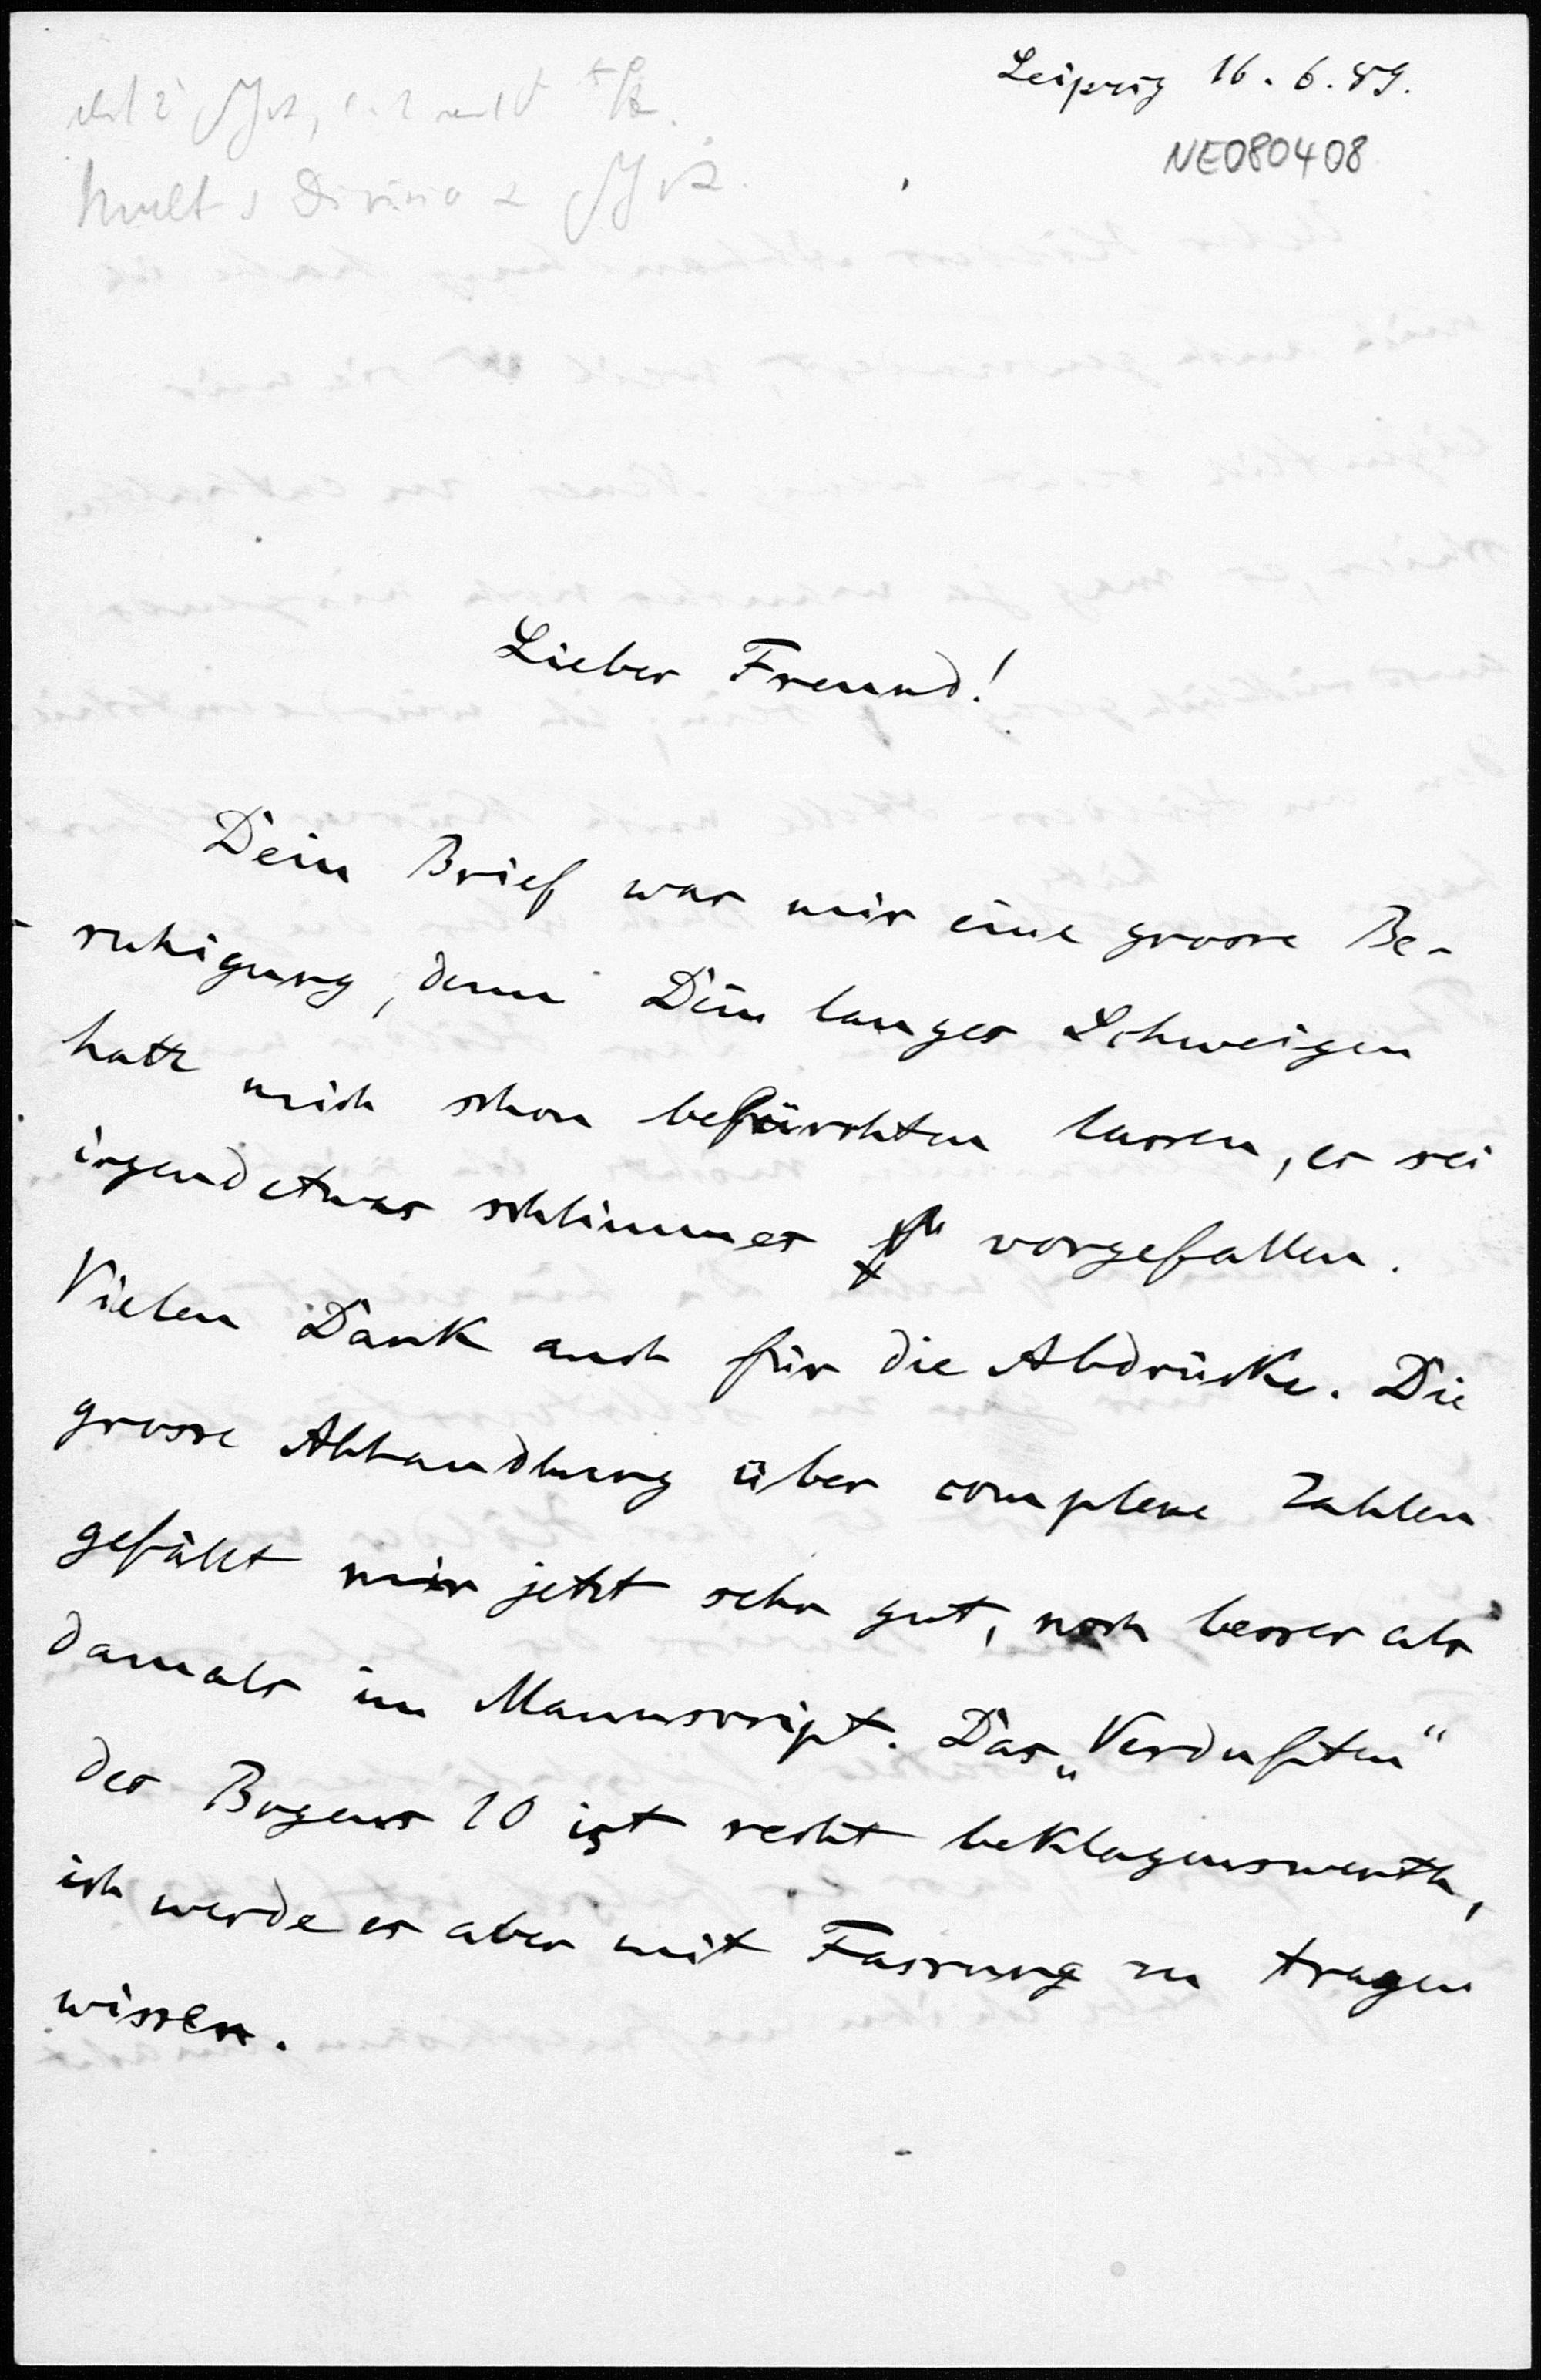 Leipzig 16. 6. 89.
NE080408
Lieber Freund!
Dein Brief war mir eine grosse Be-
ruhigung, denn Dein langes Schweigen
hatte mich schon befürchten lassen, es sei
irgend etwas schlimmes vorgefallen.
Vielen Dank auch für die Abdrücke. Die
grosse Abhandlung über complexe Zahlen
gefällt mir jetzt sehr gut, noch besser als
damals im Manuscript. Das „Verduften“
des Bogens 10 ist recht beklagenswerth,
ich werde es aber mit Fassung zu tragen
wissen.